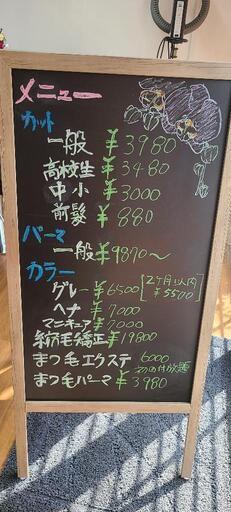 メニュー
カット
一般 ¥3980
高校生 ¥3480
中小 ¥3000
前髪 ¥880
パーマ
一般 ¥9870〜
カラー
グレー ¥6500 [2ケ月以内 ¥5500]
ヘナ ¥7000
マニキュア ¥7000
縮毛矯正 ¥19800
まつ毛エクステ 6000
付放題
まつ毛パーマ ¥3980